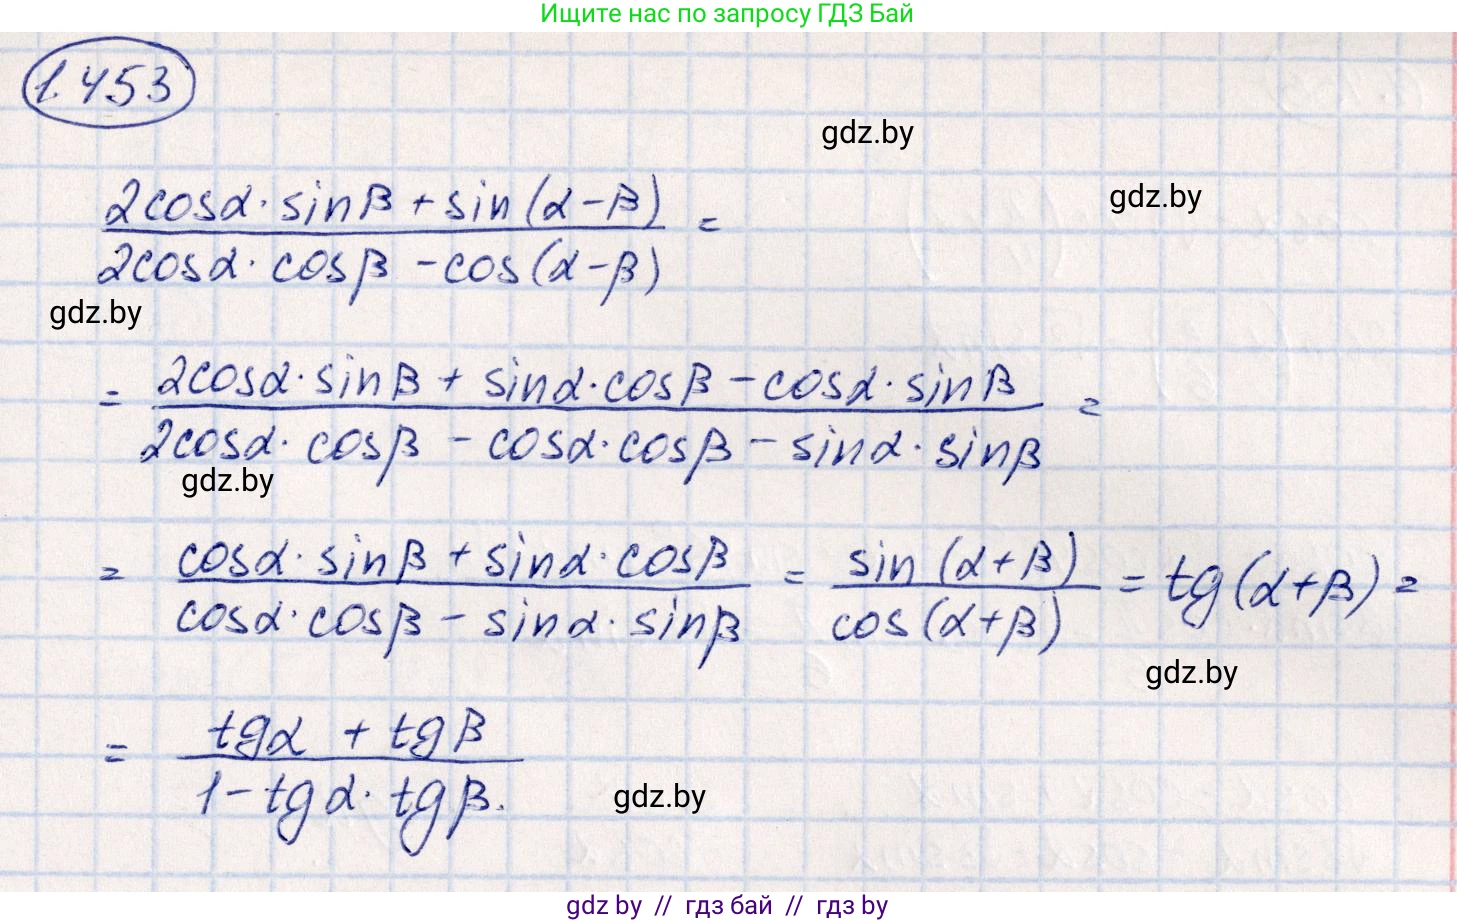 Ищите нас по запросу ГДЗ Бай
1.453
gdz.by
gdz.by
2cosα·sinβ+sin(α-β) =
2cosα·cosβ -cos(α-β)
gdz.by
= 2cosα·sinβ + sinα·cosβ -cosα·sinβ =
2cosα·cosβ - cosα·cosβ - sinα·sinβ
gdz.by
= cosα·sinβ + sinα·cosβ = sin(α+β) = tg(α+β) =
cosα·cosβ - sinα·sinβ cos(α+β)
gdz.by
= tgα + tgβ
1-tgα·tgβ.
gdz.by
gdz by // гдз бай // gdz by